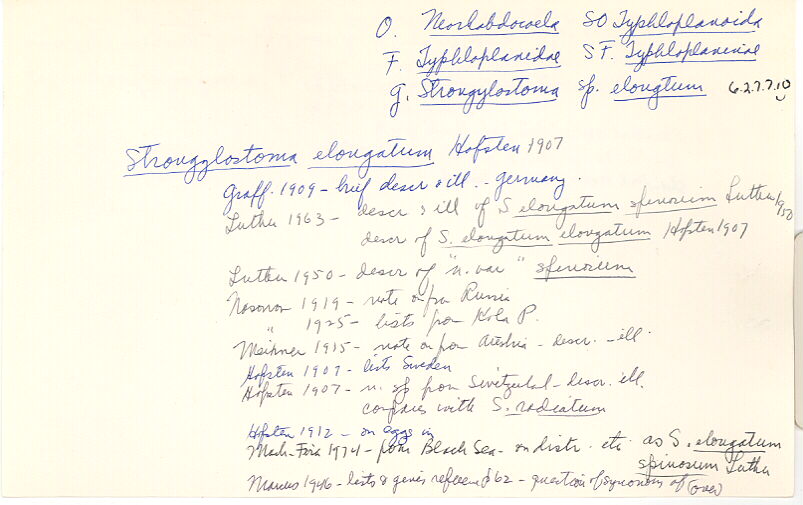 O. Neorhabdocoela SO Typhloplanoida
F. Typhloplanidae SF. Typhloplaninae
g. Strongylostoma sp. elongtum 6.2.7.7.10
Strongylostoma elongatum Hofsten 1907
Graff. 1909 - brief descr & ill. - Germany.
Luther 1963 - descr & ill of S elongatum spinosum Luther 1950
descr of S. elongatum elongatum Hofsten 1907
Luther 1950 - descr of "n. var" spinosum
Nasonov 1919 - note on from Russia
" 1925 - lists from Kola P.
Meixner 1915 - note on from Austria - descr. - ill.
Hofsten 1907 - lists Sweden
Hofsten 1907 - n. sp from Switzerland - descr. ill.
compares with S. radiatum
Hofsten 1912 - on eggs in
Mack-Fira 1974 - from Black Sea - on distr. etc as S. elongatum
spinosum Luther
Marcus 1946 - lists & gives reference p 62 - question of synonomy of (over)